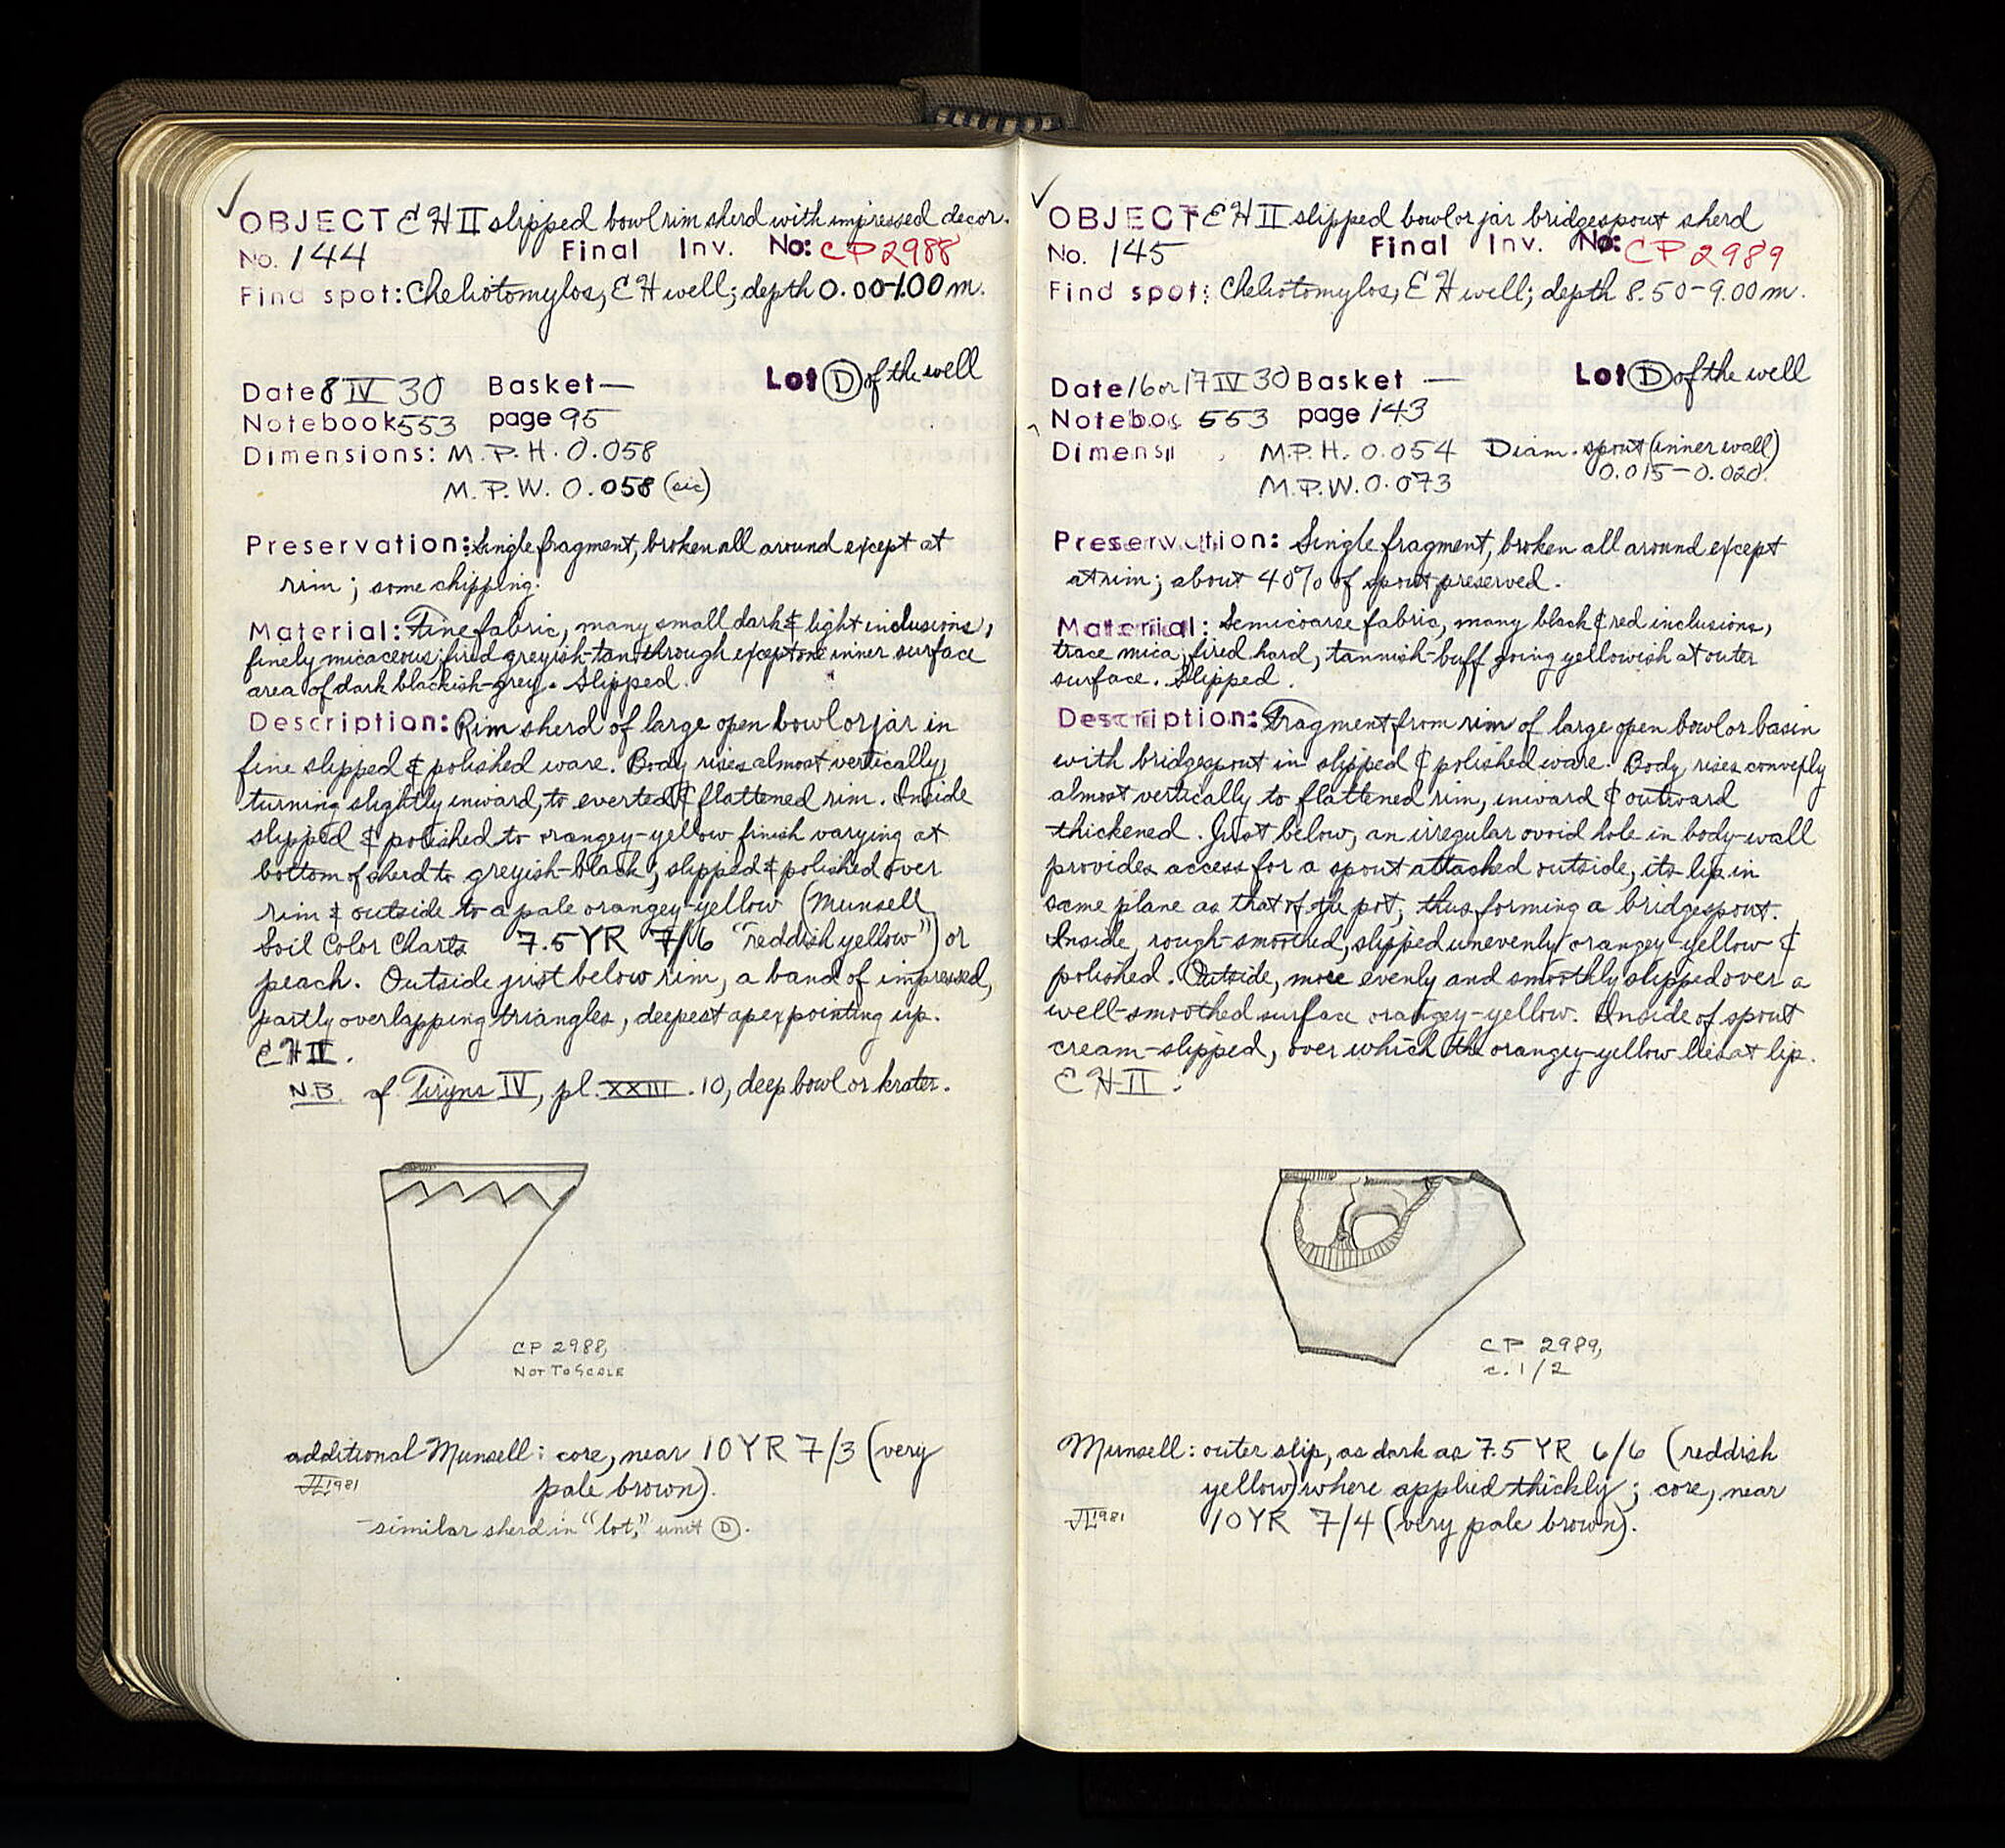 ✓
OBJECT EH II slipped bowl rim sherd with impressed decor.
No. 144 Final Inv. No: CP 2988
Find spot: Cheliotomylos, EH well; depth 0.00-1.00 m.
Lot Ⓓ of the well
Date 8 IV 30 Basket —
Notebook 553 page 95
Dimensions: M.P.H. 0.058
M.P.W. 0.058 (sic)
Preservation: Single fragment, broken all around except at
rim; some chipping.
Material: Fine fabric, many small dark & light inclusions,
finely micaceous; fired greyish-tan through except one inner surface
area of dark blackish-grey. Slipped.
Description: Rim sherd of large open bowl or jar in
fine slipped & polished ware. Body rises almost vertically,
turning slightly inward, to everted & flattened rim. Inside
slipped & polished to orangey-yellow finish varying at
bottom of sherd to greyish-black; slipped & polished over
rim & outside to a pale orangey-yellow (Munsell
Soil Color Charts 7.5 YR 7/6 "reddish yellow") or
peach. Outside just below rim, a band of impressed,
partly overlapping triangles, deepest apex pointing up.
EH II.
N.B. cf. Tiryns IV, pl. XXIII.10, deep bowl or krater.
CP 2988,
NOT TO SCALE
additional Munsell: core, near 10 YR 7/3 (very
1981 pale brown).
-similar sherd in "lot," unit Ⓓ.
✓
OBJECT EH II slipped bowl or jar bridgespout sherd
No. 145 Final Inv. No: CP 2989
Find spot: Cheliotomylos, EH well; depth 8.50-9.00 m.
Lot Ⓓ of the well
Date 16 or 17 IV 30 Basket —
Noteboo 553 page 143
Dimensi M.P.H. 0.054 Diam. spout (inner wall)
M.P.W. 0.073 0.015-0.020.
Preservation: Single fragment, broken all around except
at rim; about 40% of spout preserved.
Material: Semicoarse fabric, many black & red inclusions,
trace mica; fired hard, tannish-buff going yellowish at outer
surface. Slipped.
Description: Fragment from rim of large open bowl or basin
with bridgespout in slipped & polished ware. Body rises convexly
almost vertically to flattened rim, inward & outward
thickened. Just below, an irregular ovoid hole in body-wall
provides access for a spout attached outside, its lip in
same plane as that of the pot, thus forming a bridgespout.
Inside, rough-smoothed, slipped unevenly orangey-yellow &
polished. Outside, more evenly and smoothly slipped over a
well-smoothed surface orangey-yellow. Inside of spout
cream-slipped, over which the orangey-yellow lies at lip.
EH II.
CP 2989,
c. 1/2
Munsell: outer slip, as dark as 7.5 YR 6/6 (reddish
yellow) where applied thickly; core, near
1981 10 YR 7/4 (very pale brown).